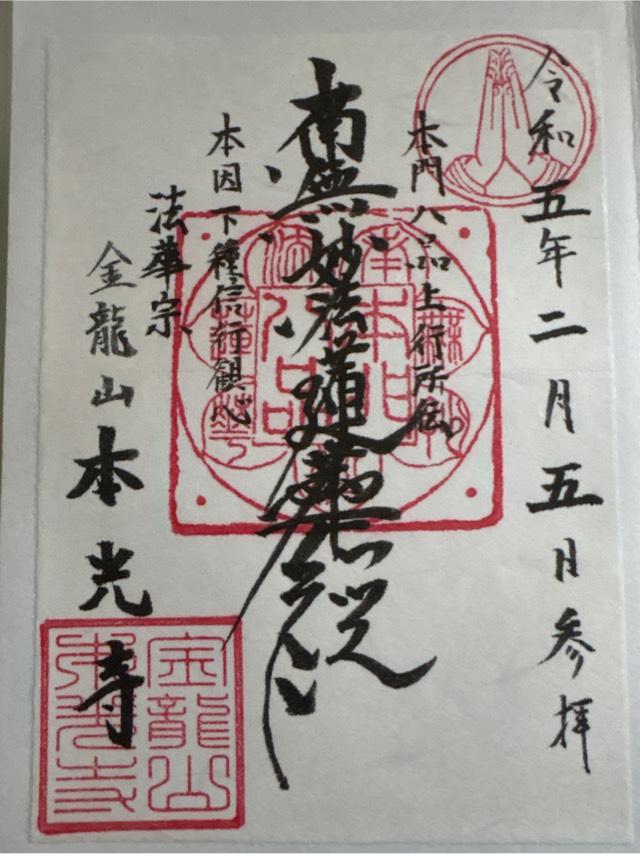 令和五年二月五日参拝
本門八品上行所伝
南無妙法蓮華経
本因下種信行観心
法華宗
金龍山本光寺
金龍山
本光寺